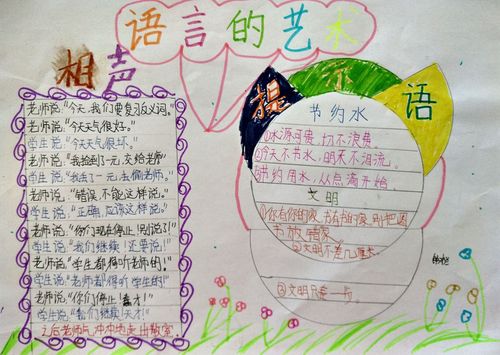 语言的艺术
相声
老师说:"今天,我们要复习反义词。"
老师说:"今天天气很好。"
学生说:"今天天气很坏。"
老师说:"我拾到了一元,交给老师"
学生说:"我丢了一元,去偷老师。"
老师说:"错误,不能这样说。"
学生说:"正确,应该这样说。"
老师说:"你们现在停止,别说了!"
学生说:"我们继续!还要说!"
老师说:"学生都得听老师的!"
学生说:"老师都得听学生的!"
老师说:"你们停止!蠢才!"
学生说:"我们继续!天才!"
之后老师气冲冲地走出教室。
提示语
节约水
①水源可贵,切不浪费。
②今天不节水,明末不泪流。
③节约用水,从点滴开始。
文明
①你有你的家,书有书的家,别把
书放错家
②文明不差几厘米。
③文明只差一